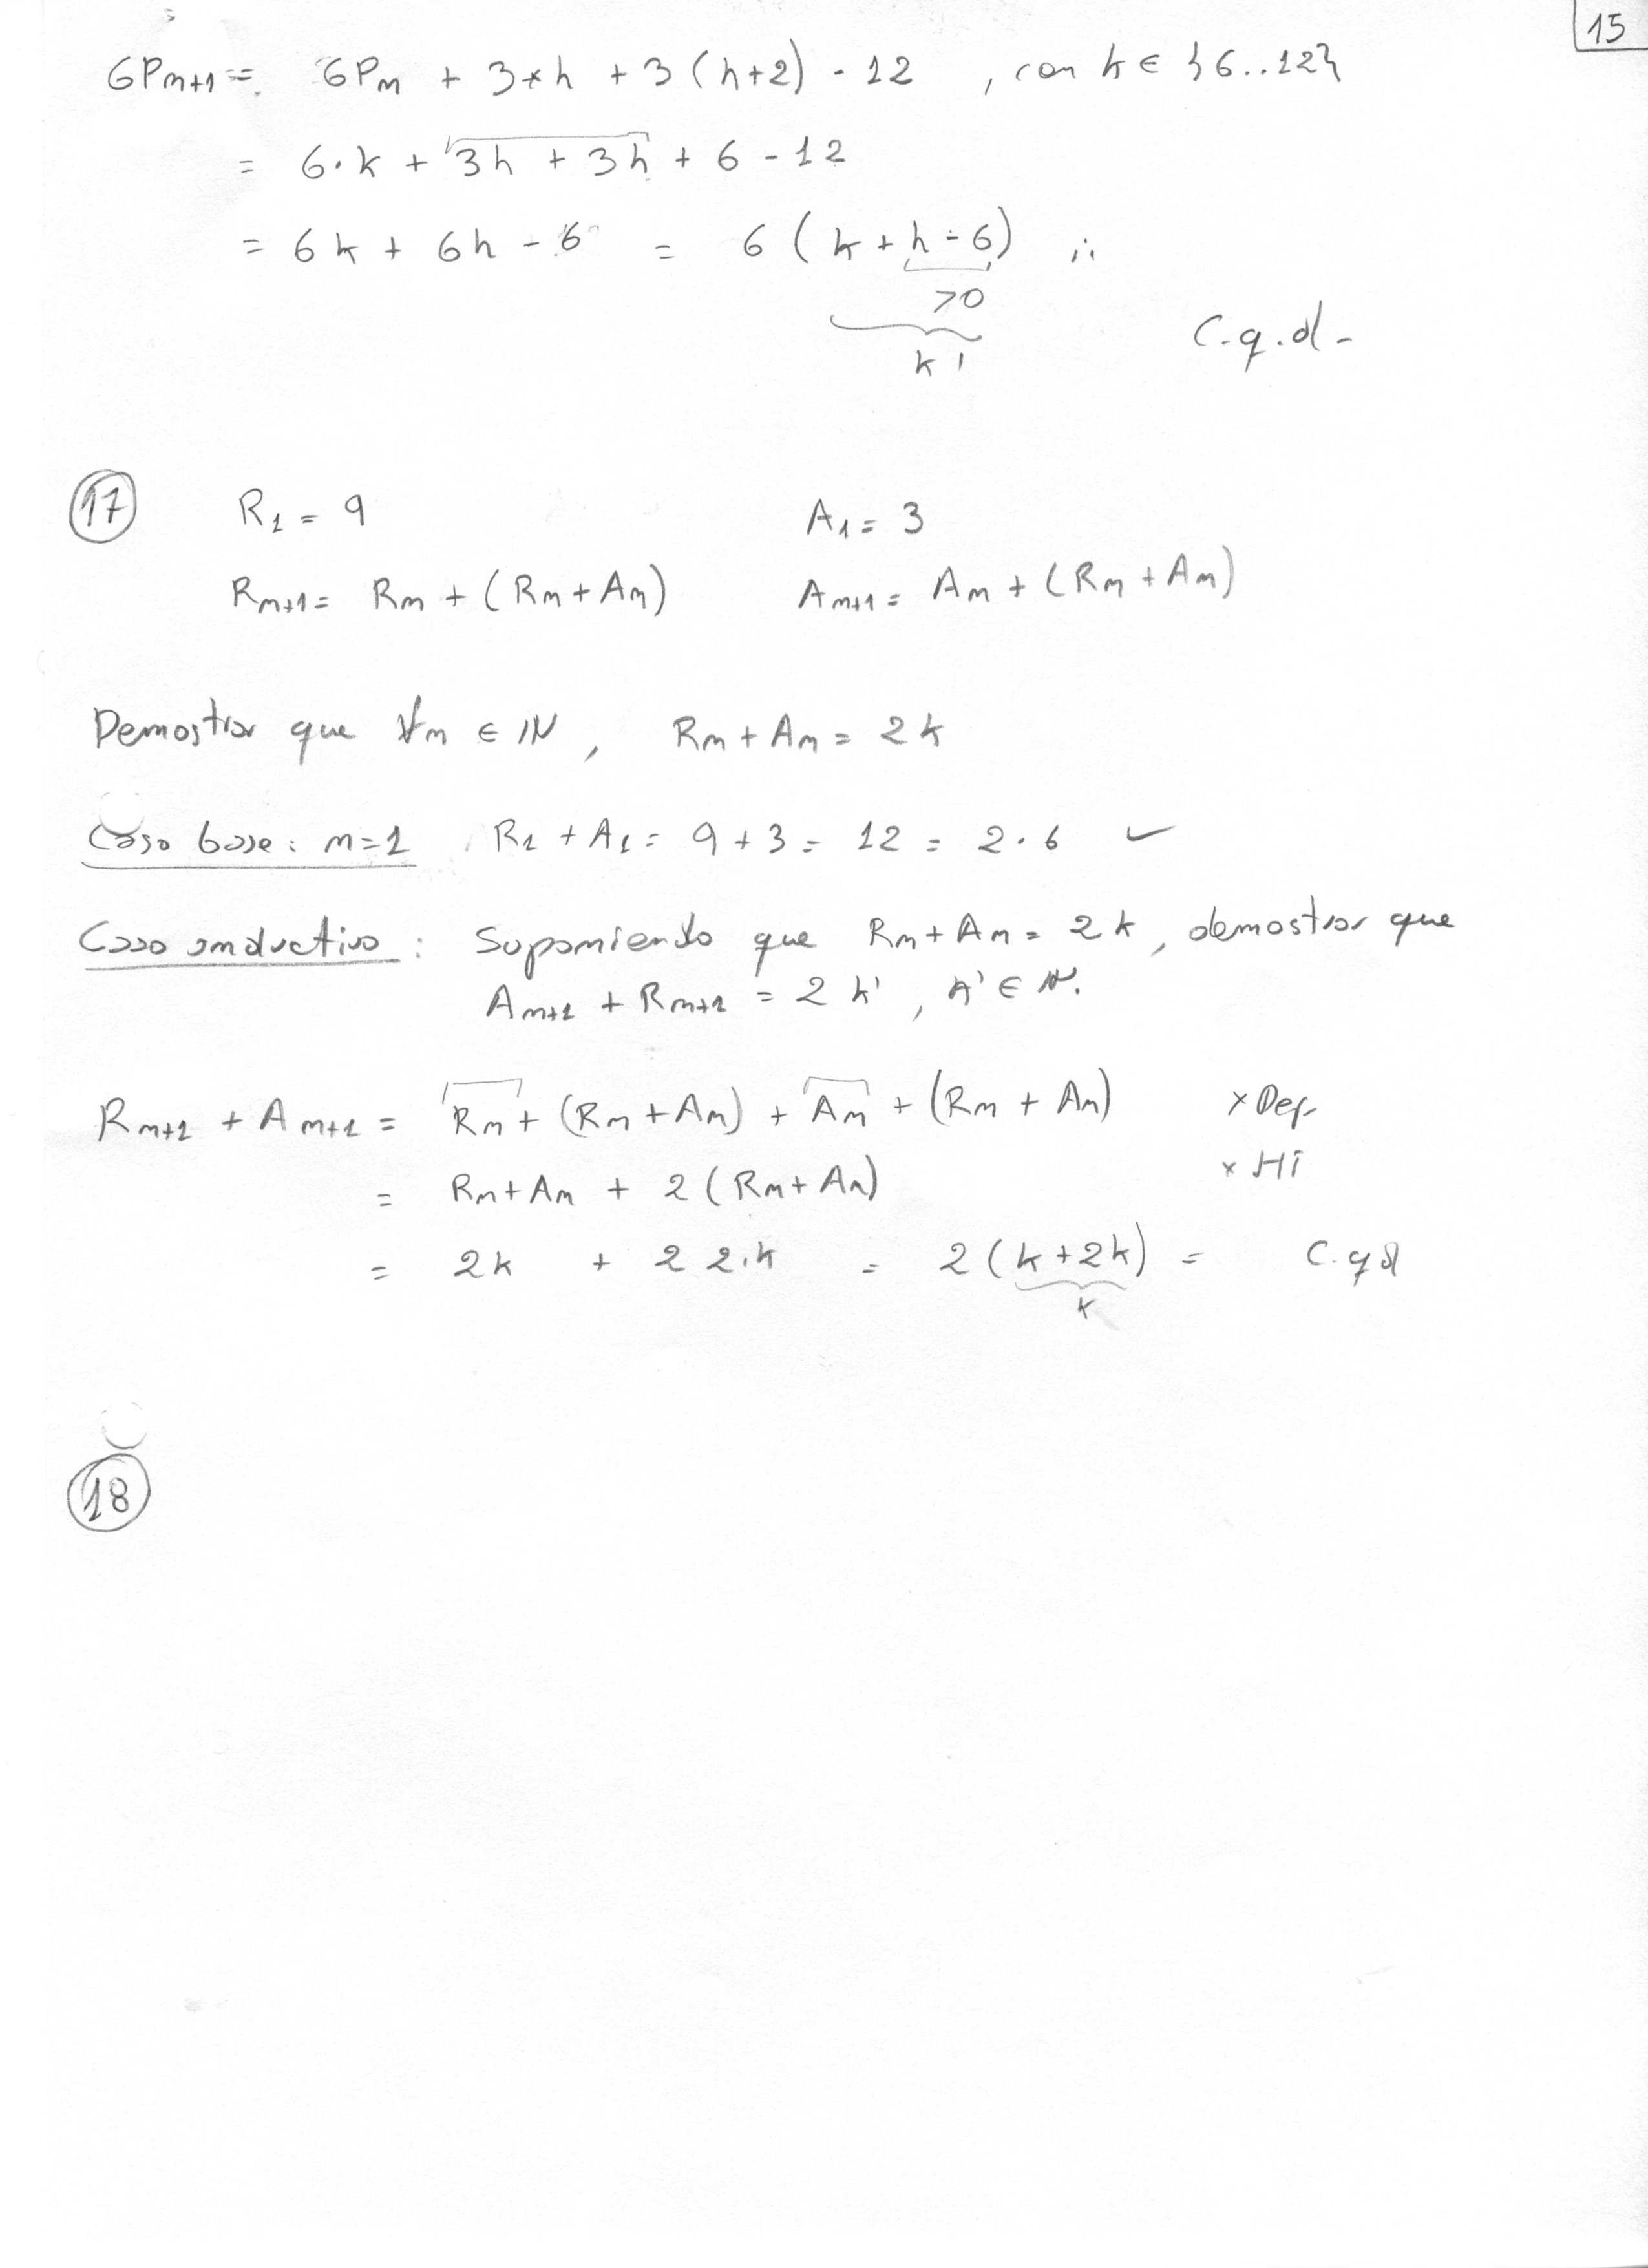 15
GPₙ₊₁ = GPₙ + 3*h + 3(h+2) - 12 , con h ∈ {6..12}
= 6·k + 3h + 3h + 6 - 12
= 6k + 6h - 6 = 6 (k + h - 6) ∴
>0
k'
C.q.d.-
17
R₁ = 9 A₁ = 3
Rₙ₊₁ = Rₙ + (Rₙ + Aₙ) Aₙ₊₁ = Aₙ + (Rₙ + Aₙ)
Demostrar que ∀n ∈ ℕ, Rₙ + Aₙ = 2k
Caso base: n=1 R₁ + A₁ = 9 + 3 = 12 = 2·6 ✓
Caso inductivo: Suponiendo que Rₙ + Aₙ = 2k, demostrar que
Aₙ₊₁ + Rₙ₊₁ = 2k', k' ∈ ℕ.
Rₙ₊₁ + Aₙ₊₁ = Rₙ + (Rₙ + Aₙ) + Aₙ + (Rₙ + Aₙ) x Def.
= Rₙ + Aₙ + 2 (Rₙ + Aₙ) x Hi
= 2k + 2 2.k = 2 (k + 2k) = C.qd
k
18